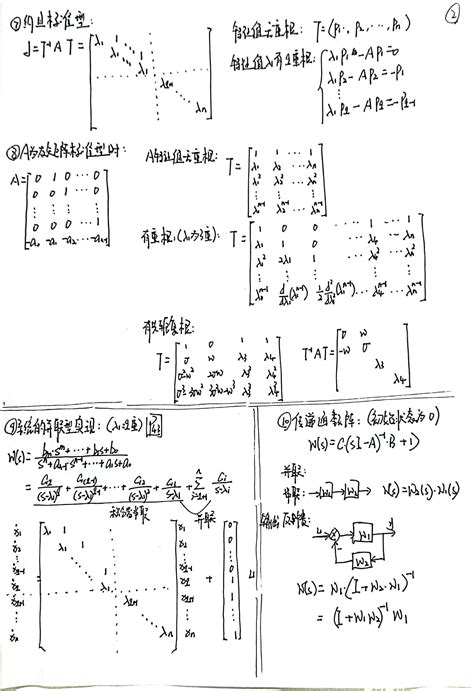 ②
⑦约旦标准型:
J=T⁻¹AT=[λ₁ 1 λ₁ 1 λ₁ λ_{q+1} λₙ]
特征值无重根: T=(P₁, P₂, ⋯, Pₙ)
特征值λ₁有q重根: {λ₁P₁-AP₁=0
λ₁P₂-AP₂=-P₁
⋮
λ₁P_q-AP_q=-P_{q-1}
⑧A为友矩阵标准型时:
A=[0 1 0 ⋯ 0
0 0 1 ⋯ 0
⋮ ⋮
0 0 0 ⋯ 1
-a₀ -a₁ -a₂ ⋯ -a_{n-1}]
A特征值无重根: T=[1 1 ⋯ 1
λ₁ λ₂ ⋯ λₙ
λ₁² λ₂² ⋯ λₙ²
⋮ ⋮ ⋮
λ₁ⁿ⁻¹ λ₂ⁿ⁻¹ ⋯ λₙⁿ⁻¹]
有重根:(λ₁为3重) T=[1 0 0 ⋯ 1 ⋯ 1
λ₁ 1 0 ⋯ λ₄ ⋯ λₙ
λ₁² 2λ₁ 1 ⋯ λ₄² ⋯ λₙ²
⋮ ⋮ ⋮ ⋮ ⋮
λ₁ⁿ⁻¹ d/dλ₁(λ₁ⁿ⁻¹) ½ d²/dλ₁²(λ₁ⁿ⁻¹) ⋯ λ₄ⁿ⁻¹ ⋯ λₙⁿ⁻¹]
有共轭复根:
T=[1 0 1 1
σ w λ₃ λ₄
σ²-w² 2σw λ₃² λ₄²
σ³-3σw² 3σ²w-w³ λ₃³ λ₄³]
T⁻¹AT=[σ w
-w σ
λ₃
λ₄]
⑨系统的并联型实现: (λ₁q重)
W(s)=(b_m s^m+⋯+b₁s+b₀)/(sⁿ+a_{n-1}sⁿ⁻¹+⋯+a₁s+a₀)
=C_{1q}/(s-λ₁)^q+C_{1(q-1)}/(s-λ₁)^{q-1}+⋯+C₁₂/(s-λ₁)²+C₁₁/(s-λ₁)+∑_{i=q+1}^n C_i/(s-λ_i)
并联
[ẋ₁ ẋ₂ ⋮ ẋₙ]=[λ₁ 1 λ₁ 1 λ₁ λ_{q+1} λₙ][x₁ x₂ ⋮ xₙ]+[0 0 ⋮ 0 1 1 ⋮ 1]u
⑩传递函数阵: (初始状态为0)
W(s)=C(sI-A)⁻¹·B+D
并联:
串联: →[W₁]→[W₂]→ W(s)=W₂(s)·W₁(s)
输出反馈:
u y
W₁
W₂
W(s)=W₁·(I+W₂·W₁)⁻¹
=(I+W₁W₂)⁻¹W₁